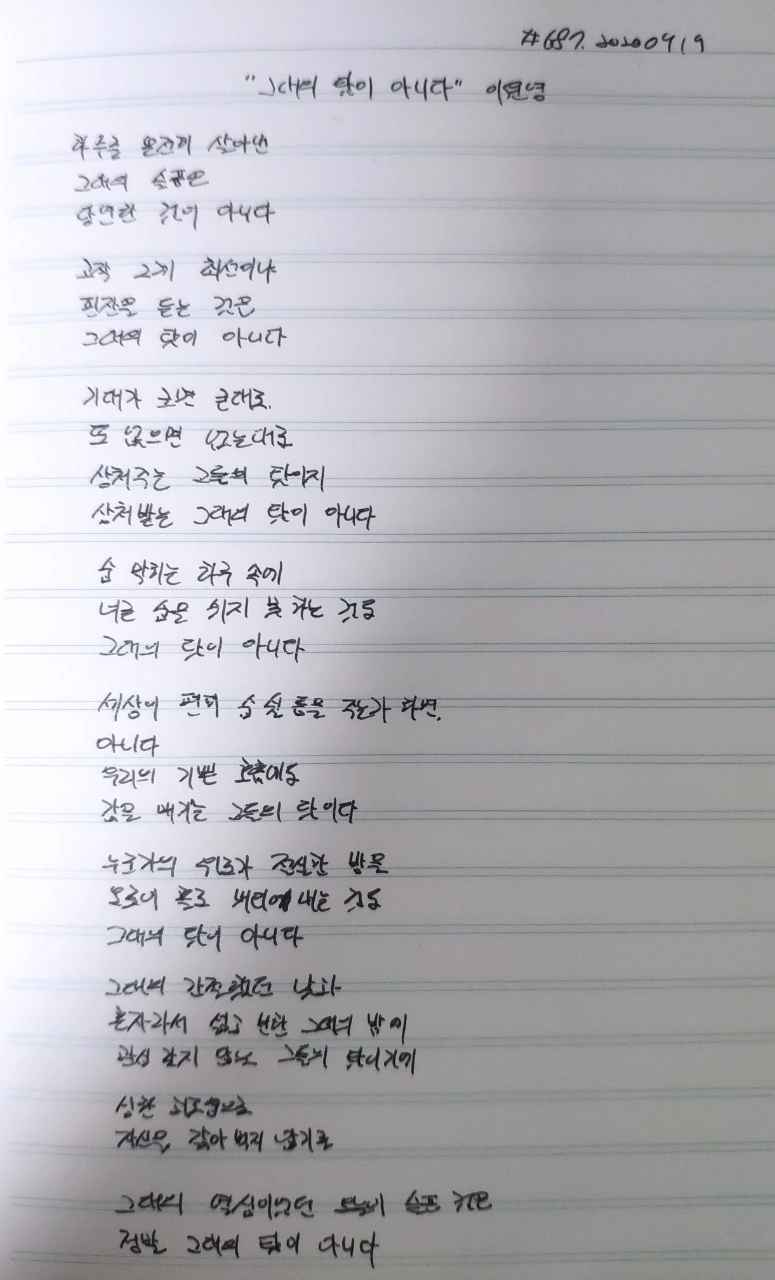 #687. 20200919
"그대의 탓이 아니다" 이원영
하루를 온전히 살아낸
그대의 슬픔은
당연한 것이 아니다
고작 그게 최선이냐
핀잔을 듣는 것은
그대의 탓이 아니다
기대가 크면 큰대로.
또 없으면 없는대로
상처주는 그들의 탓이지
상처받는 그대의 탓이 아니다
숨 막히는 하루 속에
너른 숨을 쉬지 못 하는 것도
그대의 탓이 아니다
세상이 편히 숨 쉴 틈을 주는가 하면.
아니다
우리의 가쁜 호흡에도
값을 매기는 그들의 탓이다
누군가의 위로가 절실한 밤을
오로이 홀로 버티어 내는 것도
그대의 탓이 아니다
그대의 간절했던 낮과
혼자라서 섧고 쓴한 그대의 밤에
관심 갖지 않는 그들의 탓이기에
심한 괴로움으로
자신을 갉아 먹지 않기를
그대의 열심이었던 오늘이 슬픈 것은
정말 그대의 탓이 아니다